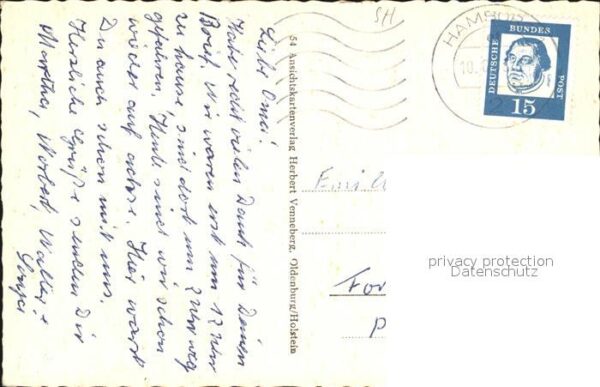 SH
HAMBUR
18.
DEUTSCHE BUNDES POST
15
Liebe Oma!
Habe recht vielen Dank für Deinen
Brief. Wir waren erst um 12 Uhr
zu hause, sind dort um 2 Uhr weg
gefahren. Heute sind wir schon
wieder auf achse. Hier warst
Du auch schon mit uns.
Herzliche Grüße senden Dir
Norbert, Walter &
54 Ansichtskartenverlag Herbert Venneberg, Oldenburg/Holstein
Emil
For
P
privacy protection
Datenschutz